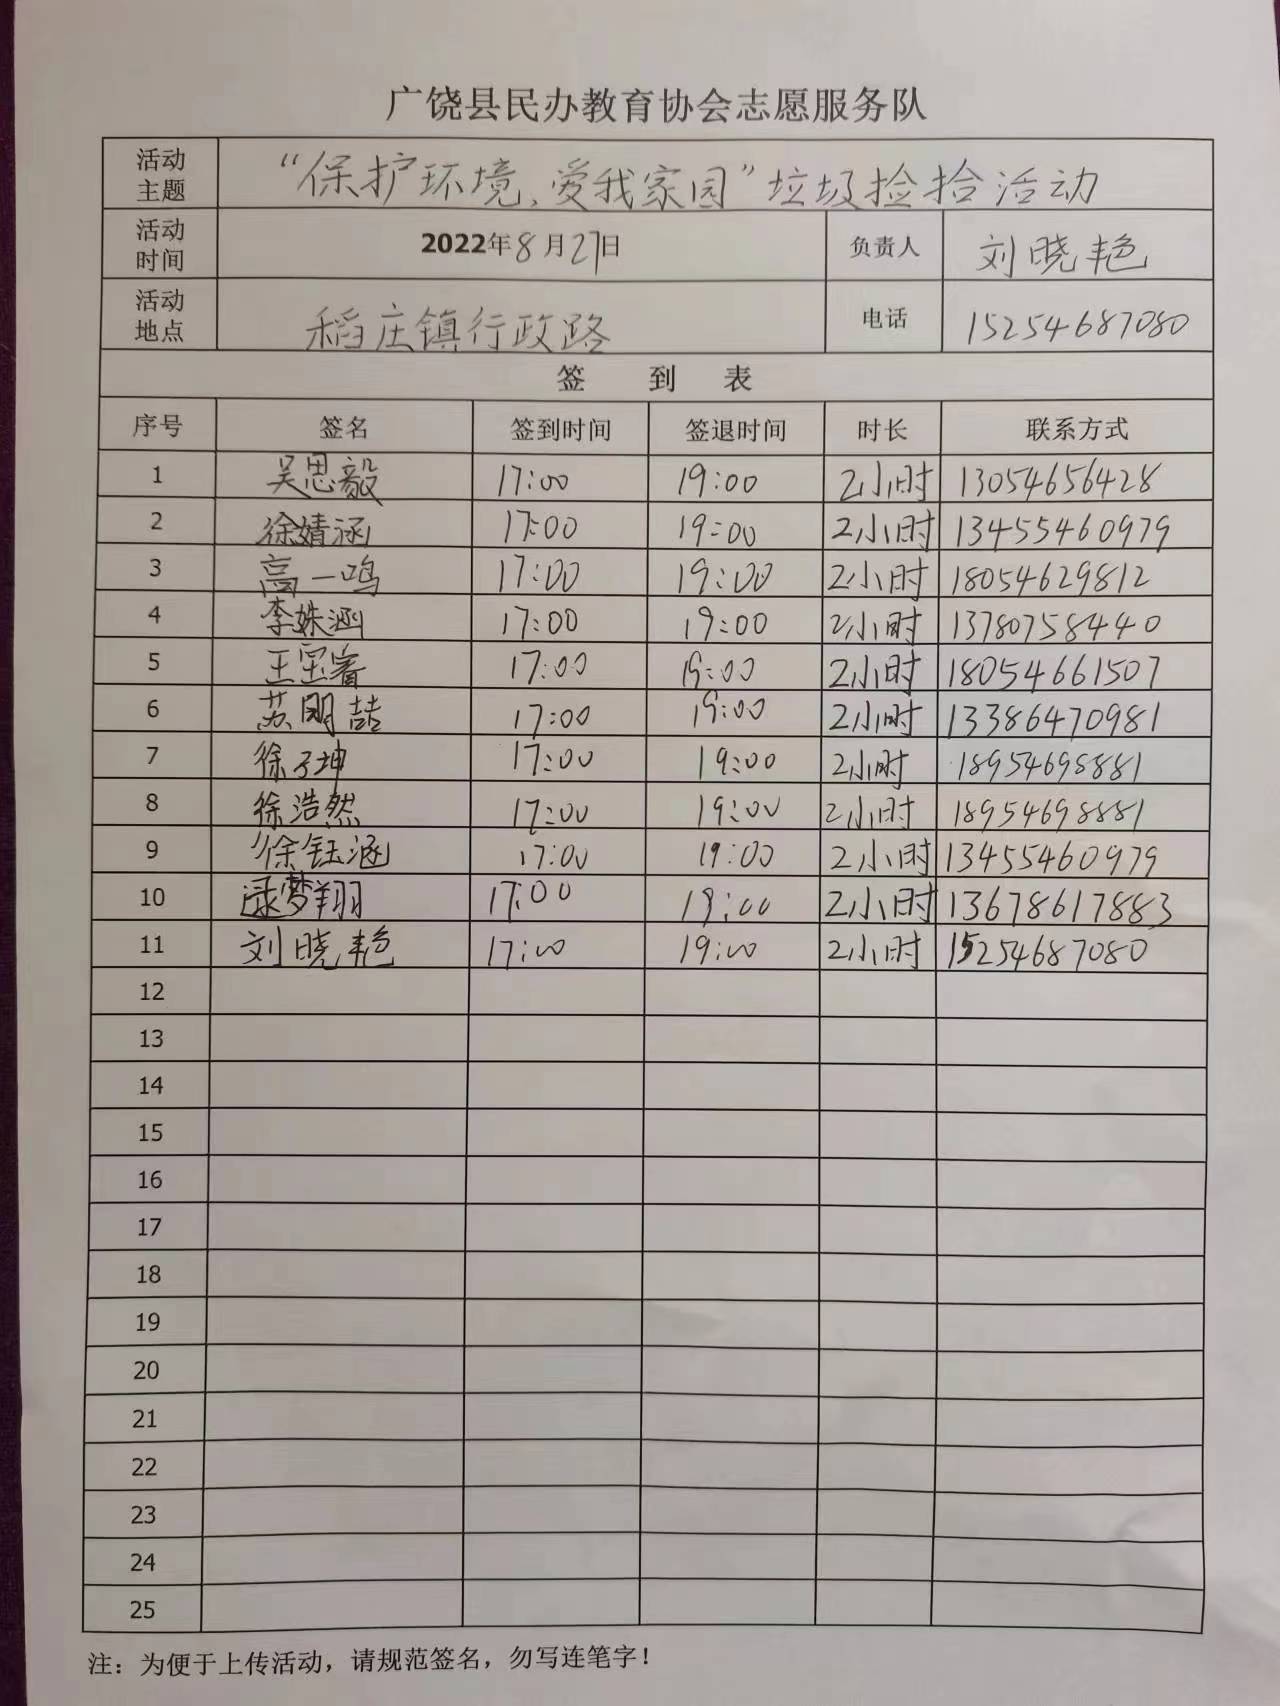 广饶县民办教育协会志愿服务队
活动主题 “保护环境、爱我家园”垃圾捡拾活动
活动时间 2022年8月27日 负责人 刘晓艳
活动地点 稻庄镇行政路 电话 15254687080
签 到 表
序号 签名 签到时间 签退时间 时长 联系方式
1 吴思毅 17:00 19:00 2小时 13054656428
2 徐婧涵 17:00 19:00 2小时 13455460979
3 高一鸣 17:00 19:00 2小时 18054629812
4 李姝涵 17:00 19:00 2小时 13780758440
5 王玺睿 17:00 19:00 2小时 18054661507
6 苏明喆 17:00 19:00 2小时 13386470981
7 徐子坤 17:00 19:00 2小时 18954698881
8 徐浩然 17:00 19:00 2小时 18954698881
9 徐钰涵 17:00 19:00 2小时 13455460979
10 逯梦翔 17:00 19:00 2小时 13678617883
11 刘晓艳 17:00 19:00 2小时 15254687080
12
13
14
15
16
17
18
19
20
21
22
23
24
25
注：为便于上传活动，请规范签名，勿写连笔字！